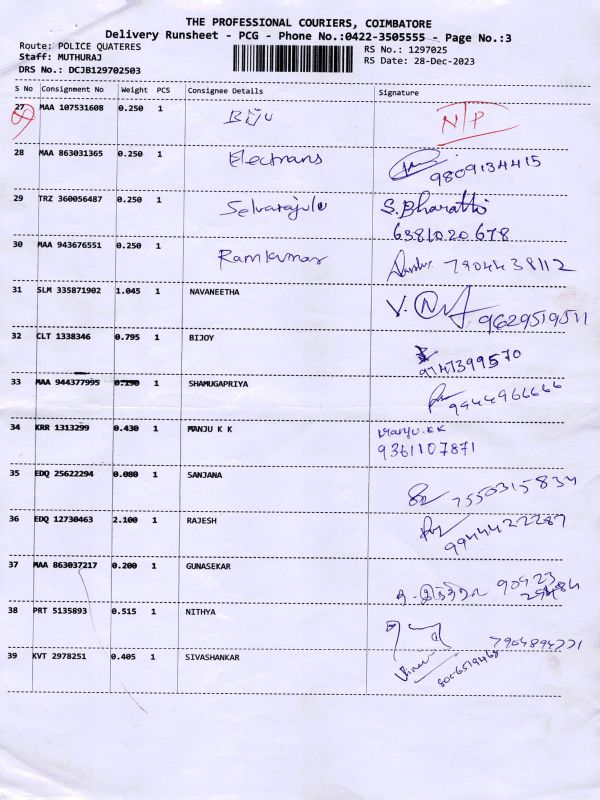 THE PROFESSIONAL COURIERS, COIMBATORE
Delivery Runsheet - PCG - Phone No.:0422-3505555 - Page No.:3
Route: POLICE QUATERES RS No.: 1297025
Staff: MUTHURAJ RS Date: 28-Dec-2023
DRS No.: DCJB129702503
S No Consignment No Weight PCS Consignee Details Signature
27 MAA 107531608 0.250 1 Biju N/P
28 MAA 863031365 0.250 1 Electrans
9809134415
29 TRZ 360056487 0.250 1 Selvarajulu S.Bharathi
6381020678
30 MAA 943676551 0.250 1 Ramkumar 7904438112
31 SLM 335871902 1.045 1 NAVANEETHA V.
9629519511
32 CLT 1338346 0.795 1 BIJOY
9747399570
33 MAA 944377995 0.190 1 SHAMUGAPRIYA
9944966666
34 KRR 1313299 0.430 1 MANJU K K Manju.KK
9361107871
35 EDQ 25622294 0.080 1 SANJANA
7550315834
36 EDQ 12730463 2.100 1 RAJESH
9944422287
37 MAA 863037217 0.200 1 GUNASEKAR
90423
38 PRT 5135893 0.515 1 NITHYA
7904894221
39 KVT 2978251 0.405 1 SIVASHANKAR